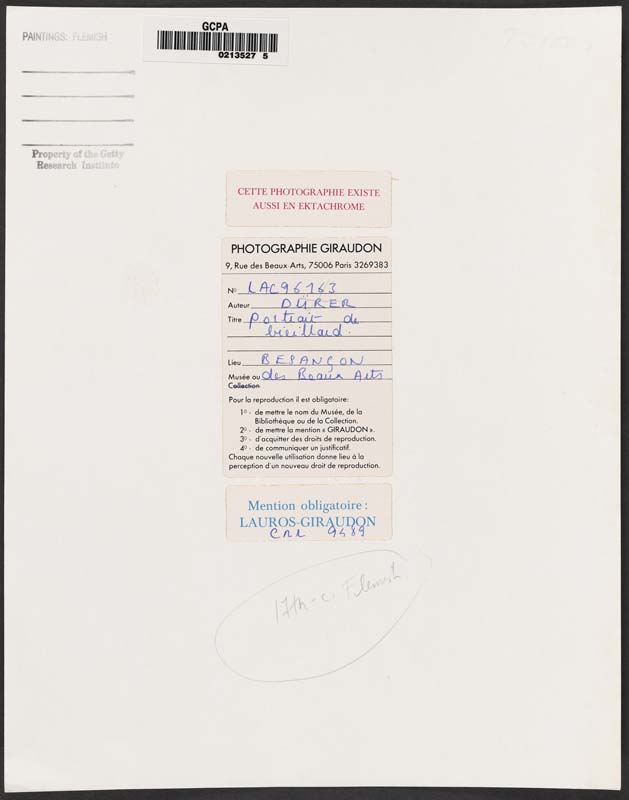 PAINTINGS: FLEMISH
GCPA
0213527 5
Property of the Getty
Research Institute
CETTE PHOTOGRAPHIE EXISTE
AUSSI EN EKTACHROME
PHOTOGRAPHIE GIRAUDON
9, Rue des Beaux-Arts, 75006 Paris 3269383
No LAC96163
Auteur DÜRER
Titre Portrait de
vieillard.
Lieu BESANÇON
Musée ou des Beaux Arts
Collection
Pour la reproduction il est obligatoire:
1o - de mettre le nom du Musée, de la
Bibliothèque ou de la Collection.
2o - de mettre la mention « GIRAUDON ».
3o - d'acquitter des droits de reproduction.
4o - de communiquer un justificatif.
Chaque nouvelle utilisation donne lieu à la
perception d'un nouveau droit de reproduction.
Mention obligatoire :
LAUROS-GIRAUDON
9489
17th-c. Flemish